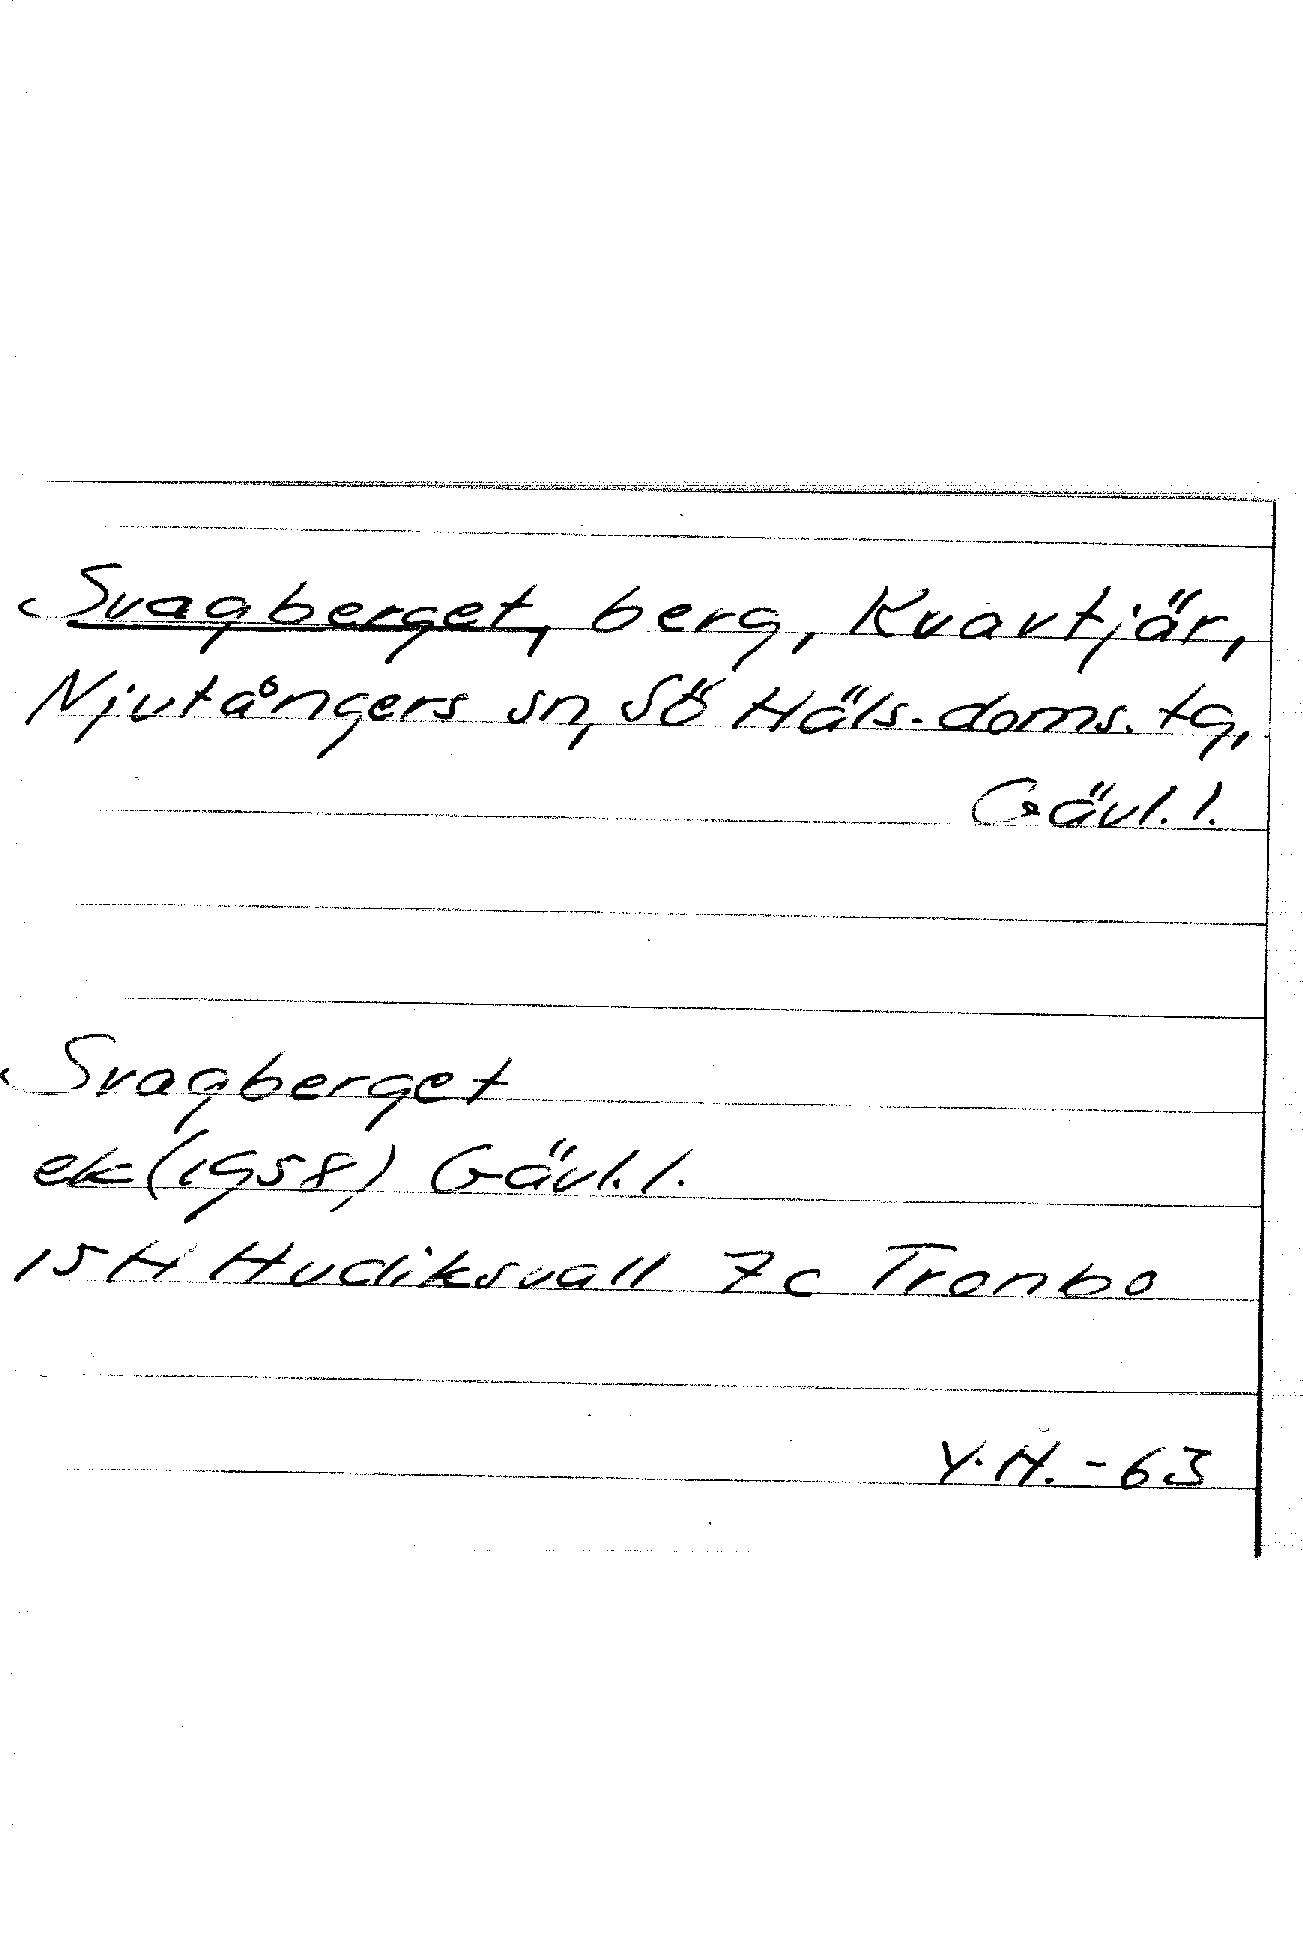 Svagberget, berg, Kvavtjär,
Njutångers sn, Sö Häls. doms. tg,
Gävl. l.
Svagberget
ek (1958) Gävl. l.
15 H Hudiksvall 7c Tronbo
Y. H. -63